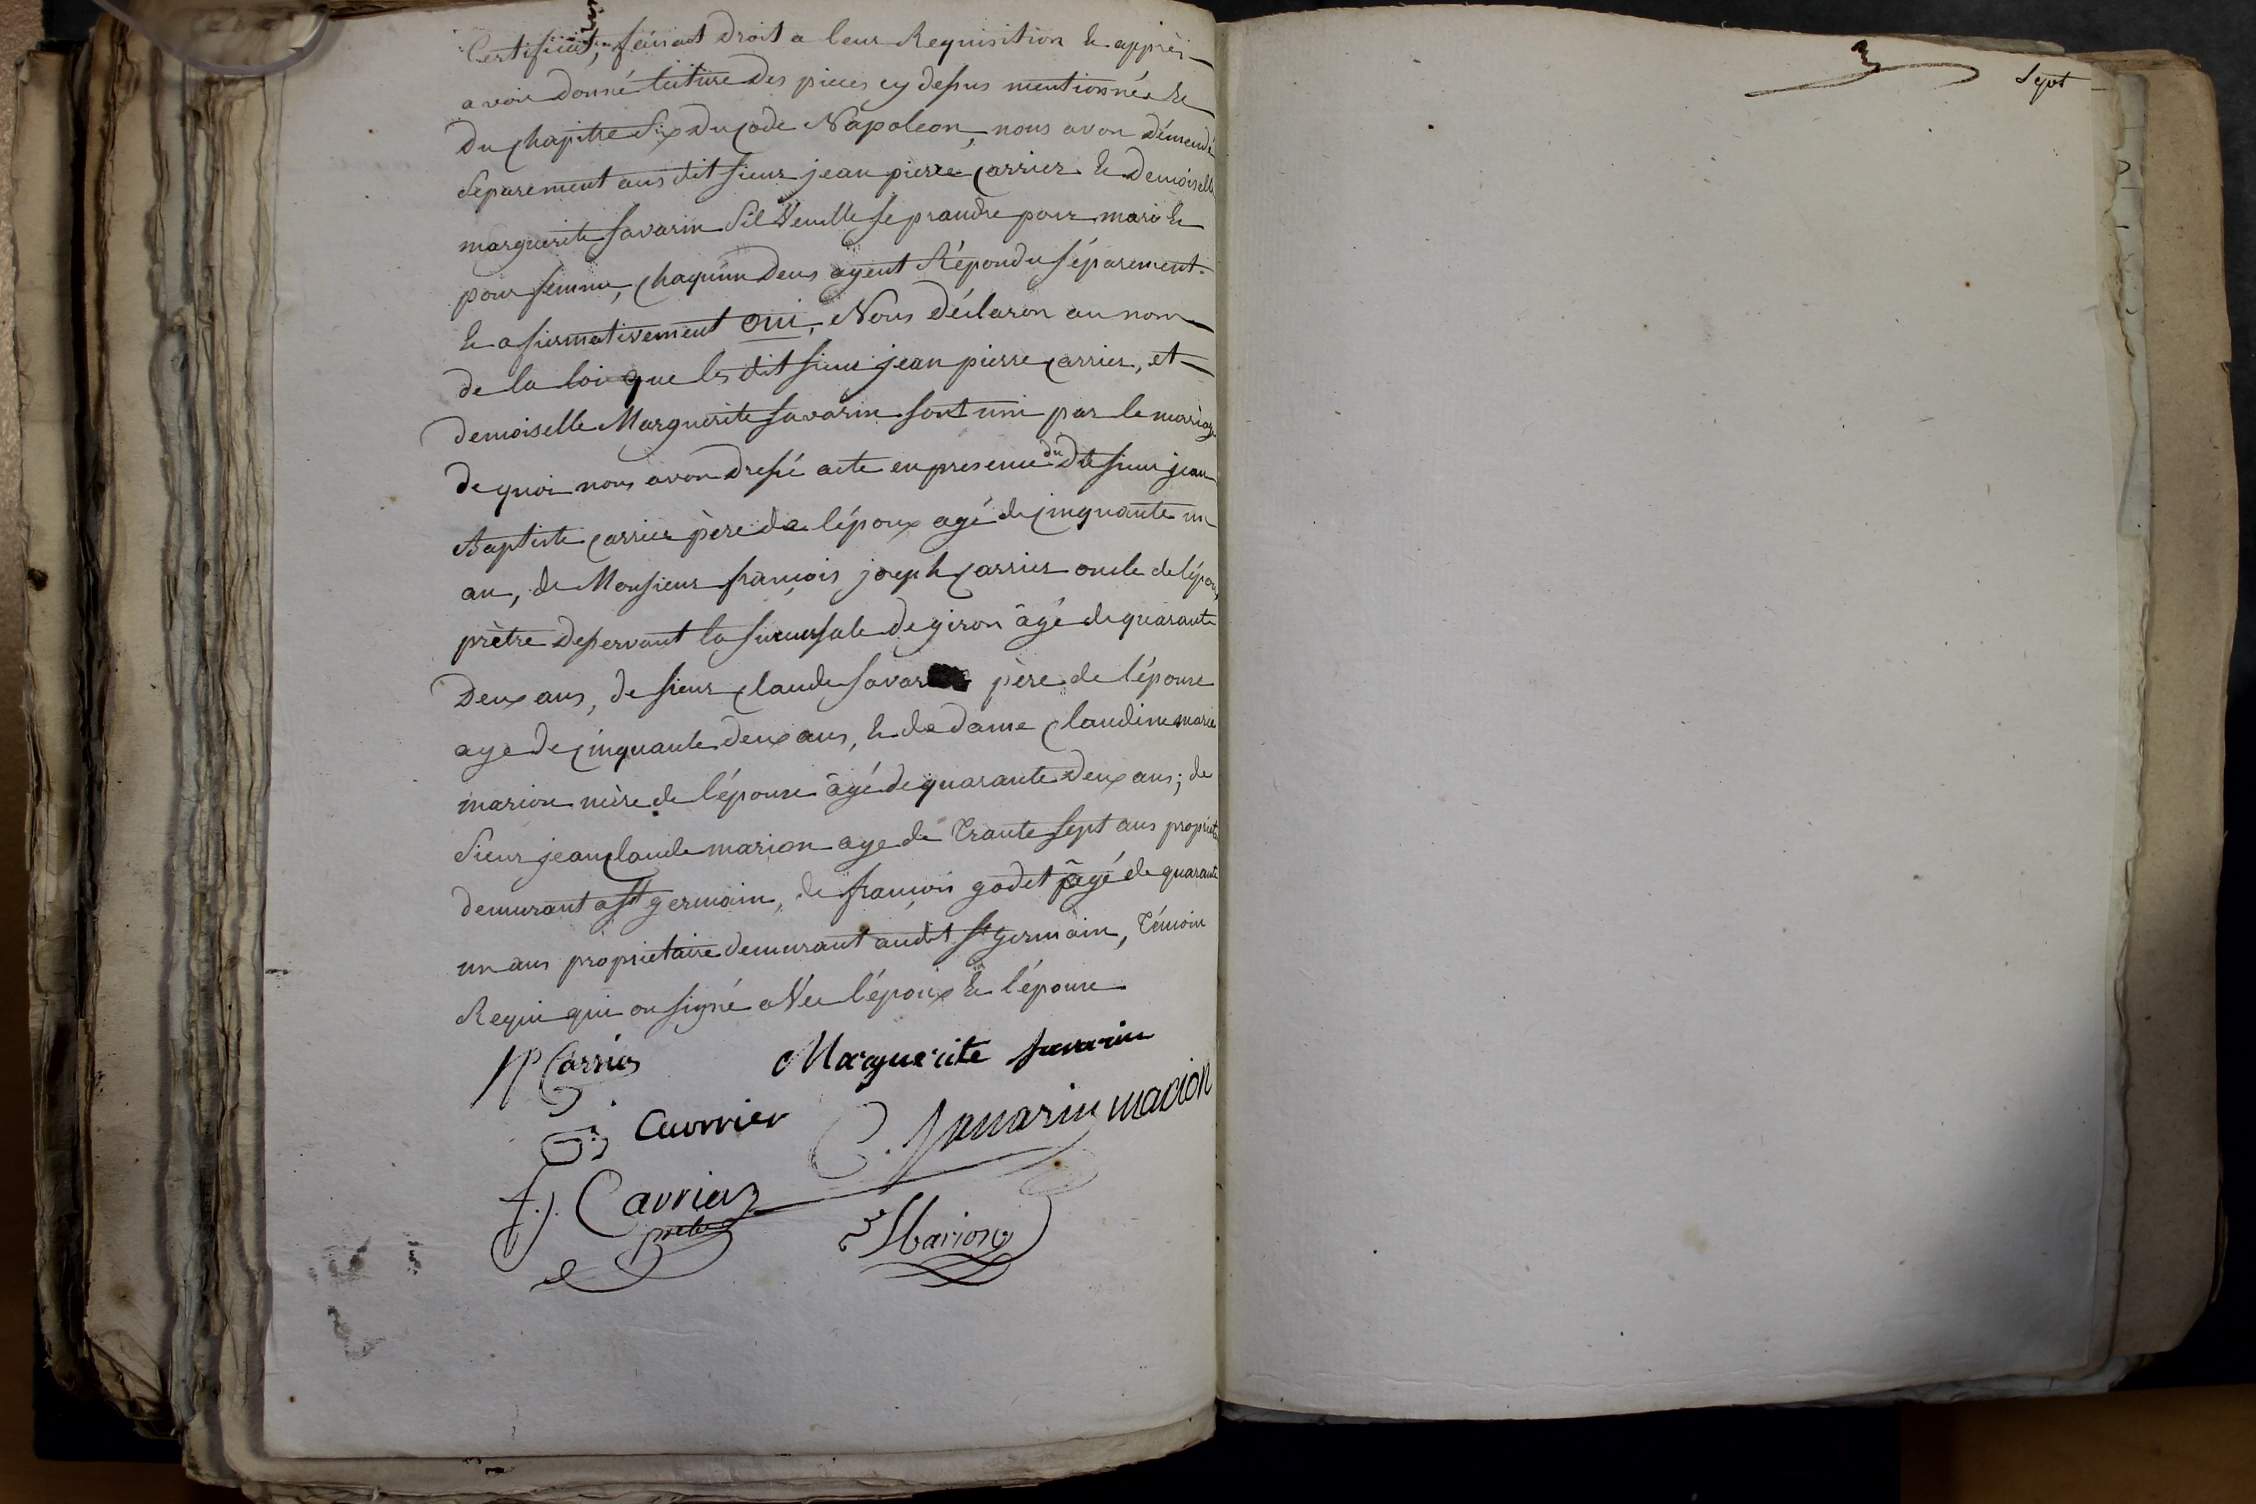 Certificat, faisant droit a leur Requisition & appres
avoir donné lecture des pieces cy dessus mentionnée &
du chapitre six du code Napoleon, nous avon démendé
séparement aus dit sieur jean pierre carrier & demoiselle
marguerite savarin s'il veulle se prandre pour mari &
pour femme, chaquun deus ayent Répondu séparement
& afirmativement oui, Nous déclaron au nom
de la loi que les dit sieur jean pierre carrier, et
demoiselle Marguerite savarin sont uni par le mariage
de quoi nous avon dressé acte en presence du dit sieur jean
Baptiste carrier père de l'époux agé de cinquante un
an, de Monsieur françois joseph carrier oncle de l'époux
prètre desservant la sucursale de giron âgé de quarante
deux ans, de sieur claude savar père de l'épouse
age de cinquante deux ans, & de dame claudine marie
marion mère de l'épouse âgé de quarante deux ans; de
sieur jean claude marion age de trante sept ans propriet
demurant a st germain, de françois godet âgé de quarante
un ans proprietaire demurant audit st germain, témoin
Requi qui on signé avec l'époux & l'épouse
JP Carrier Marguerite savarin
Carrier C. Savarin marion
f. j. Carrier Marion
prètre
Sept